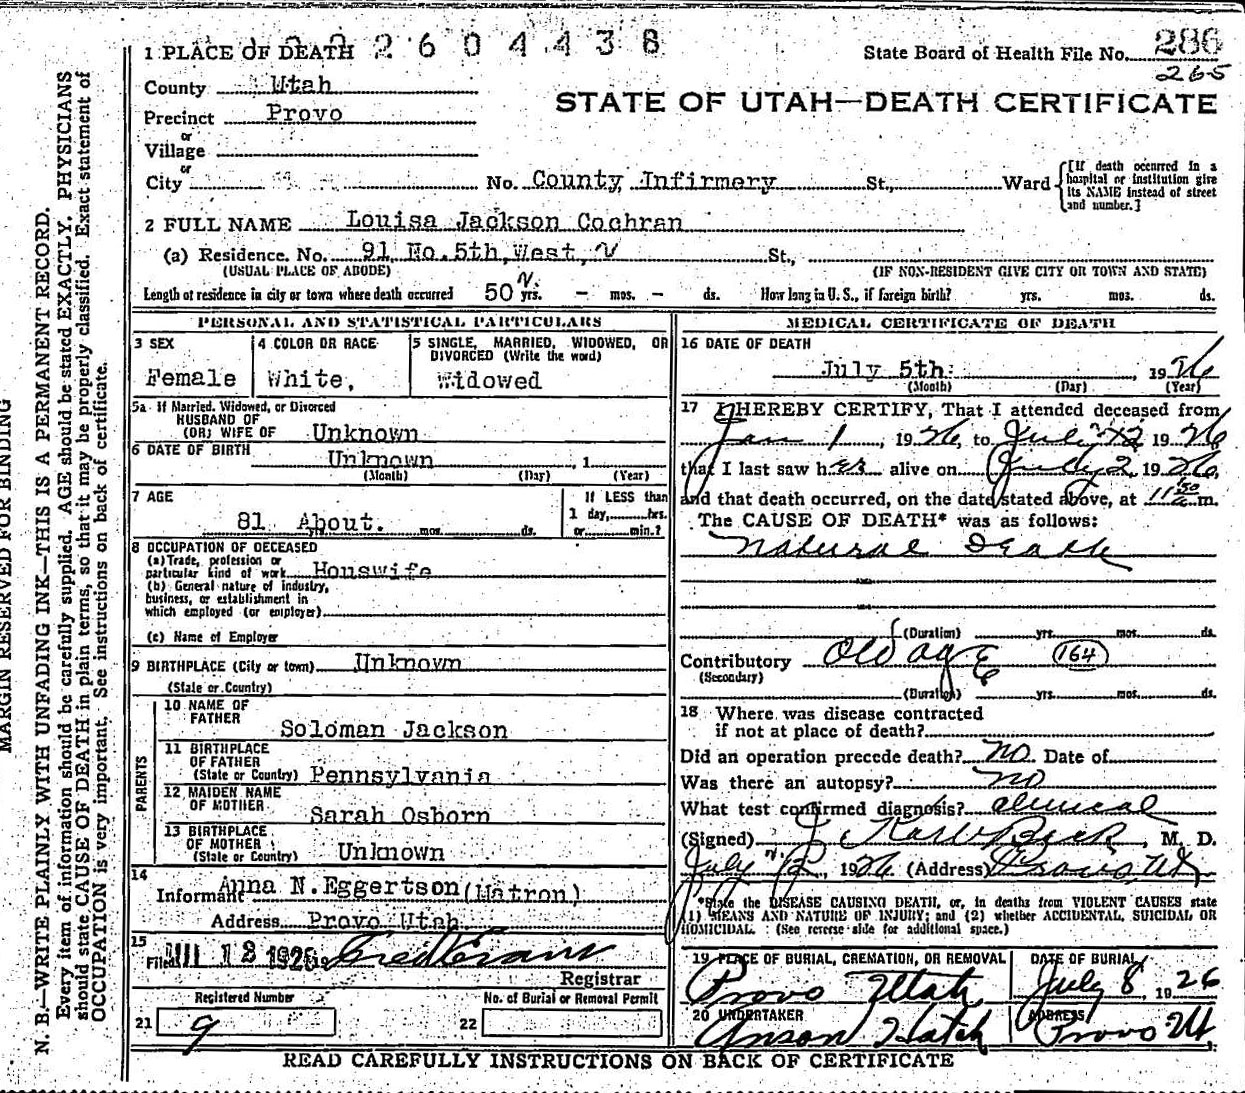 1 PLACE OF DEATH 2604438
State Board of Health File No. 286
265
County Utah
STATE OF UTAH—DEATH CERTIFICATE
Precinct Provo
or
Village
or
City No. County Infirmery St., Ward
[If death occurred in a hospital or institution give its NAME instead of street and number.]
2 FULL NAME Louisa Jackson Cochran
(a) Residence. No. 91 No. 5th, West, St.,
(USUAL PLACE OF ABODE) (IF NON-RESIDENT GIVE CITY OR TOWN AND STATE)
Length of residence in city or town where death occurred 50 yrs. – mos. – ds. How long in U. S., if foreign birth? yrs. mos. ds.
PERSONAL AND STATISTICAL PARTICULARS
3 SEX
Female
4 COLOR OR RACE
White.
5 SINGLE, MARRIED, WIDOWED, OR
DIVORCED (Write the word)
Widowed
5a If Married, Widowed, or Divorced
HUSBAND OF
(OR) WIFE OF Unknown
6 DATE OF BIRTH Unknown , 1
(Month) (Day) (Year)
7 AGE
81 About. yrs. mos. ds.
If LESS than
1 day, hrs.
or min.?
8 OCCUPATION OF DECEASED
(a) Trade, profession or
particular kind of work Houswife
(b) General nature of industry,
business, or establishment in
which employed (or employer)
(c) Name of Employer
9 BIRTHPLACE (City or town) Unknown
(State or Country)
PARENTS
10 NAME OF
FATHER
Soloman Jackson
11 BIRTHPLACE
OF FATHER
(State or Country) Pennsylvania
12 MAIDEN NAME
OF MOTHER
Sarah Osborn
13 BIRTHPLACE
OF MOTHER
(State or Country) Unknown
14
Informant Anna N. Eggertson (Matron)
Address Provo Utah
15
Filed JUL 13 1926
Registrar
Registered Number No. of Burial or Removal Permit
21 9 22
MEDICAL CERTIFICATE OF DEATH
16 DATE OF DEATH
July 5th. , 1926
(Month) (Day) (Year)
17 I HEREBY CERTIFY, That I attended deceased from
Jan 1, 1926, to July 1926
that I last saw her alive on July 2, 1926,
and that death occurred, on the date stated above, at 11 50 a.m.
The CAUSE OF DEATH* was as follows:
Natural Death
(Duration) yrs. mos. ds.
Contributory Old age 164
(Secondary)
(Duration) yrs. mos. ds.
18 Where was disease contracted
if not at place of death?
Did an operation precede death? No. Date of
Was there an autopsy? no
What test confirmed diagnosis? clinical
(Signed) J. Karl Beck, M. D.
July , 1926 (Address) Provo, Ut
*State the DISEASE CAUSING DEATH, or, in deaths from VIOLENT CAUSES state
(1) MEANS AND NATURE OF INJURY; and (2) whether ACCIDENTAL, SUICIDAL OR
HOMICIDAL. (See reverse side for additional space.)
19 PLACE OF BURIAL, CREMATION, OR REMOVAL
Provo Utah
DATE OF BURIAL
July 8, 1926
20 UNDERTAKER
Anson Hatch
ADDRESS
Provo Ut.
READ CAREFULLY INSTRUCTIONS ON BACK OF CERTIFICATE
MARGIN RESERVED FOR BINDING
N. B.—WRITE PLAINLY WITH UNFADING INK—THIS IS A PERMANENT RECORD.
Every item of information should be carefully supplied. AGE should be stated EXACTLY. PHYSICIANS
should state CAUSE OF DEATH in plain terms, so that it may be properly classified. Exact statement of
OCCUPATION is very important. See instructions on back of certificate.